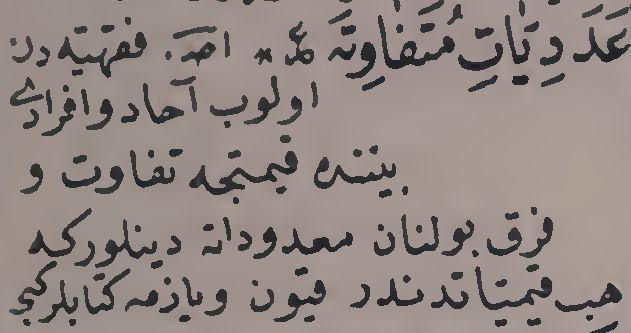 عَدَدِيَّاتِ مُتَفَاوِتَه اصط. فقهيه دن
اولوب آحاد وافرادى
بيننده قيمتجه تفاوت و
فرق بولنان معدوداته دينلوركه
هب قيمياتدندر قيون ويازمه كتابلر كبى